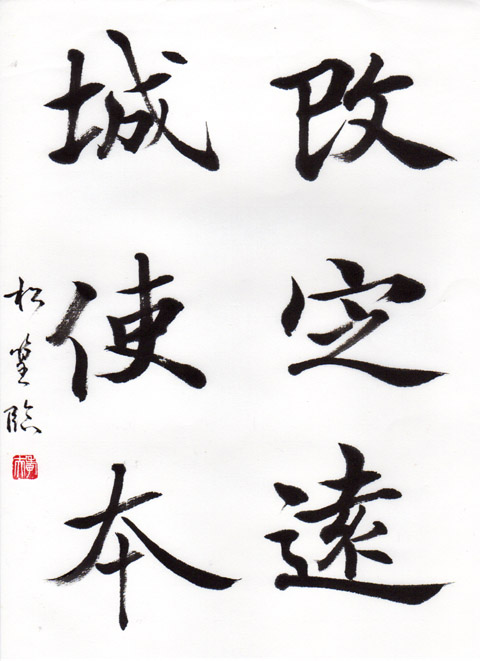 改定遠
城使本
松臨